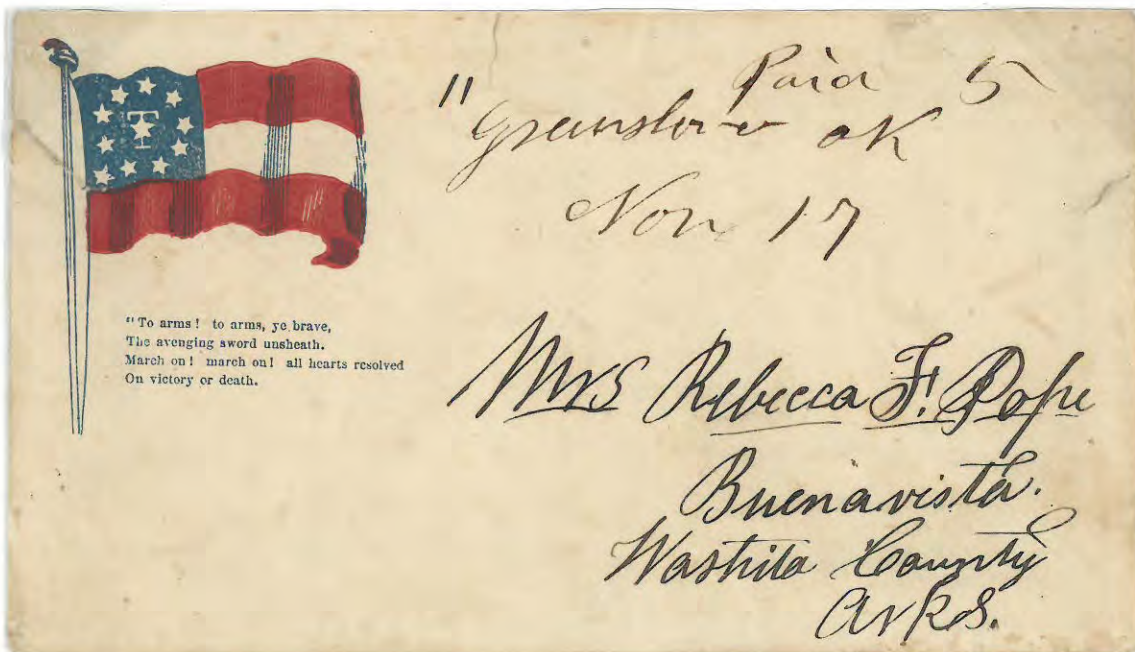 T
"To arms! to arms, ye brave,
The avenging sword unsheath.
March on! march on! all hearts resolved
On victory or death.
" Paid 5
aK
Nov 17
Mrs Rebecca F. Pope
Buenavista.
Washita County
Arks.